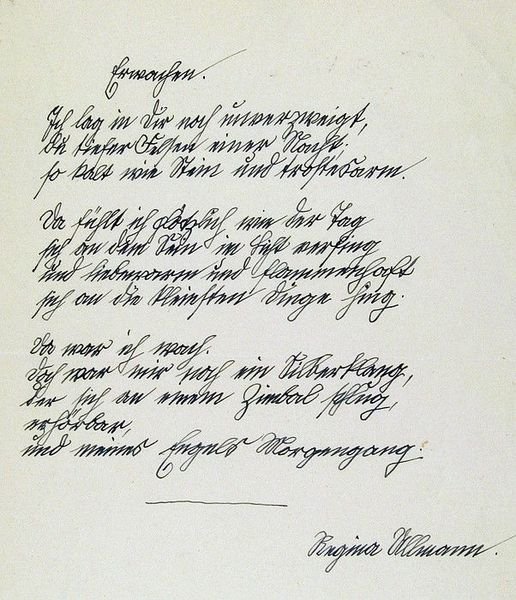 Erwachen.
Ich lag in Dir noch unverzweigt,
Du tiefer Felsen einer Nacht:
so kalt wie Stein und trostesarm.
Da fühlt ich plötzlich wie der Tag
sich an dem Sein verfing
und und
sich an die kleinsten Dinge hing.
Da war ich wach.
Doch war mir noch ein Silberklang,
der sich an einem Zimbal schlug,
erhörbar,
und meines Engels Morgengang.
Regina Ullmann.